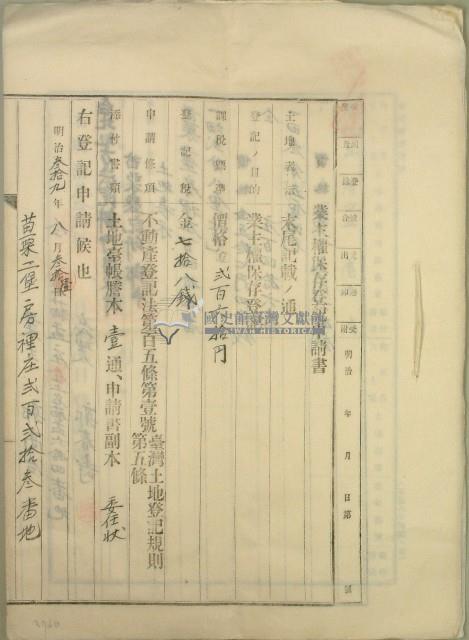 明治 年 月 日 第 號
業主權保存登記申請書
土地表示 末尾記載ノ通
登記ノ目的 業主權保存登
課稅標準 價格金弐百六拾円
登記稅 金七拾八錢
申請條項 不動產登記法第百五條第壹號 臺灣土地登記規則第五條
添付書類 土地臺帳謄本壹通、申請書副本 委任狀
右登記申請候也
明治参拾九年八月参拾日
苗栗二堡房裡庄弐百弐拾参番地
國史館臺灣文獻館
TAIWAN HISTORICA